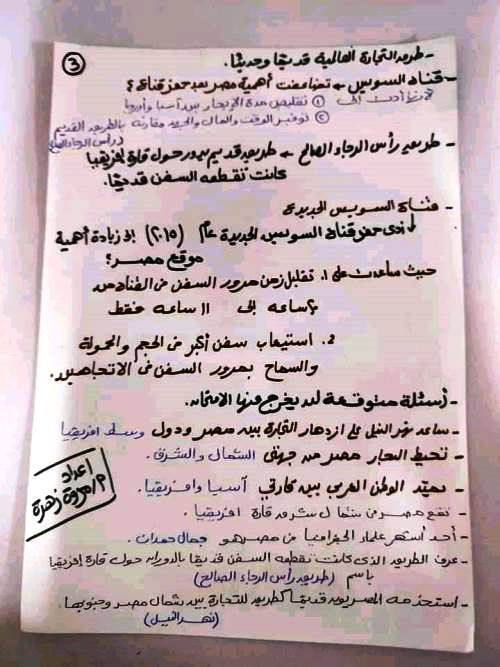 ③
- طريق التجارة العالمية قديمًا وحديثًا.
- قناة السويس ← تضاعفت أهمية مصر بعد حفر قناة؟
لأنها أدت إلى ① تقليص مدة الإبحار بين آسيا وأوربا
② توفير الوقت والمال والجهد مقارنة بالطريق القديم
(رأس الرجاء الصالح)
- طريق رأس الرجاء الصالح ← طريق قديم يدور حول قارة إفريقيا
كانت تقطعه السفن قديمًا.
- قناة السويس الجديدة
أدى حفر قناة السويس الجديدة عام (٢٠١٥) إلى زيادة أهمية
موقع مصر؟
حيث ساعدت على 1. تقليل زمن مرور السفن في القناة من
ساعه إلى ١١ ساعه فقط
2. استيعاب سفن أكبر في الحجم والحمولة
والسماح بمرور السفن في الاتجاهين.
- أسئلة متوقعة لن يخرج عنها الامتحان.
- ساعد نهر النيل على ازدهار التجارة بين مصر ودول وسط افريقيا
- تحيط البحار مصر من جهتى الشمال والشرق.
- يمتد الوطن العربي بين قارتي آسيا وافريقيا.
- تقع مصر في شمال شرق قارة افريقيا.
- أحد أشهر علماء الجغرافيا في مصر هو جمال حمدان.
- عرف الطريق الذى كانت تقطعه السفن قديمًا بالدوران حول قارة إفريقيا
باسم (طريق رأس الرجاء الصالح)
- استخدمه المصريون قديمًا كطريق للتجارة بين شمال مصر وجنوبها.
(نهر النيل)
اعداد
م/مروة زهرة